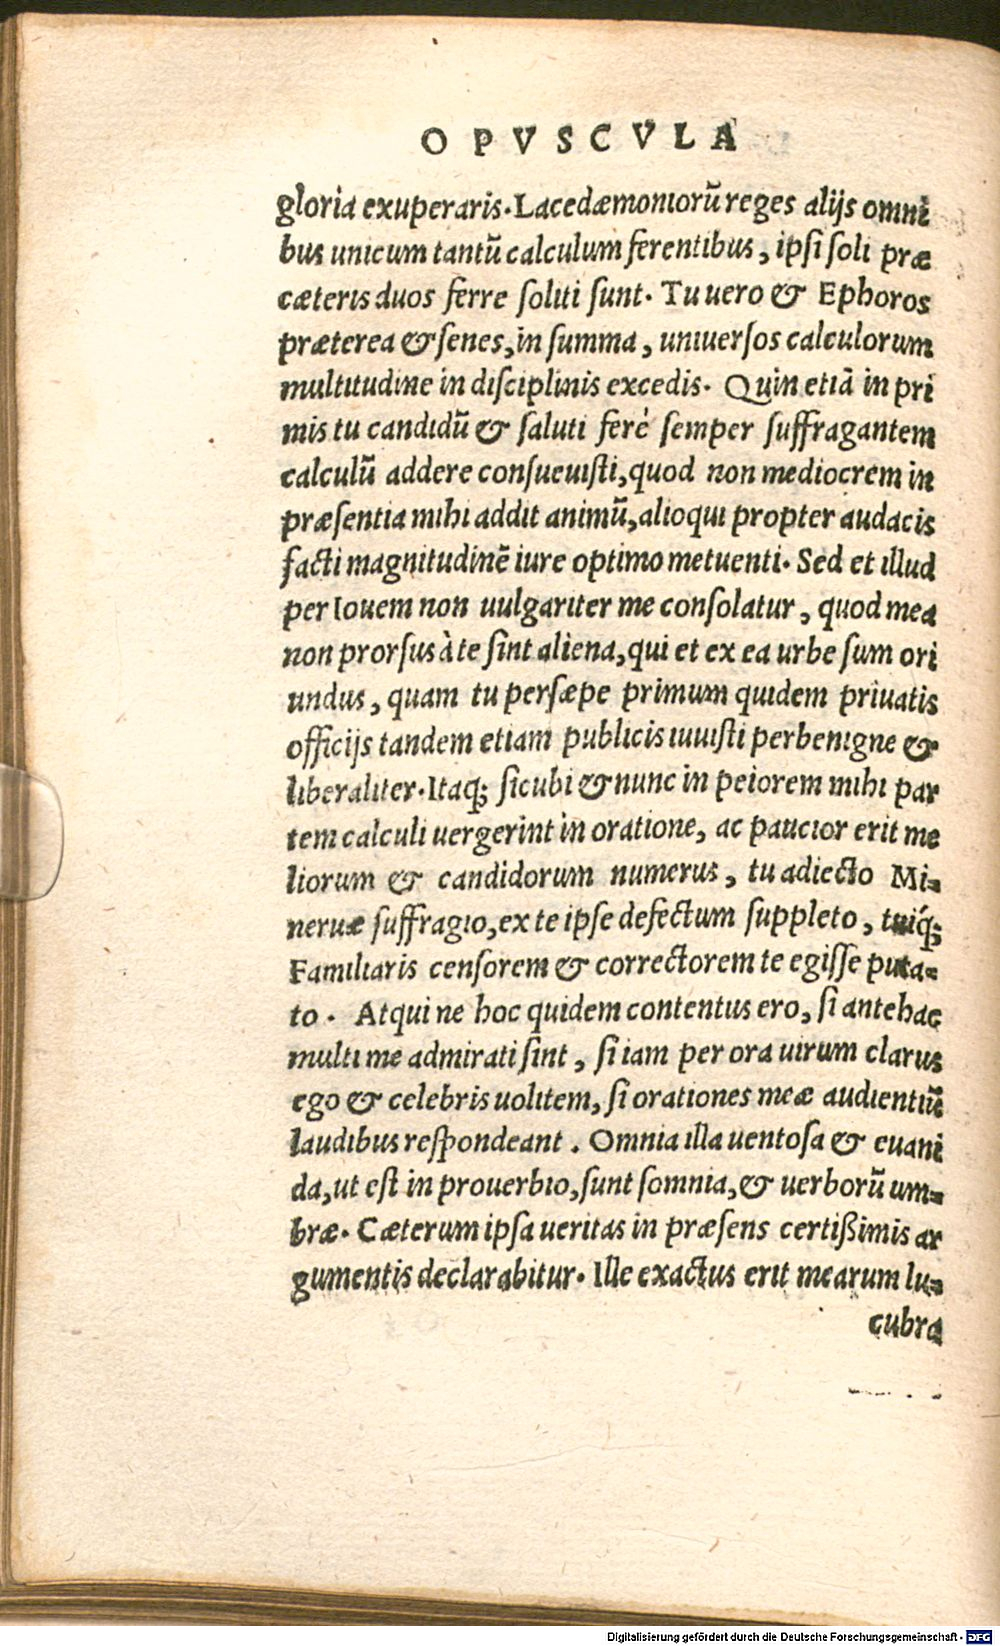 OPVSCVLA
gloria exuperaris. Lacedæmoniorũ reges alijs omni
bus unicum tantũ calculum ferentibus, ipsi soli præ
cæteris duos ferre soliti sunt. Tu uero & Ephoros
præterea & senes, in summa, uniuersos calculorum
multitudine in disciplinis excedis. Quin etiã in pri
mis tu candidũ & saluti ferè semper suffragantem
calculũ addere consueuisti, quod non mediocrem in
præsentia mihi addit animũ, alioqui propter audacis
facti magnitudinẽ iure optimo metuenti. Sed et illud
per Iouem non uulgariter me consolatur, quod mea
non prorsus à te sint aliena, qui et ex ea urbe sum ori
undus, quam tu persæpe primum quidem priuatis
officijs tandem etiam publicis iuuisti perbenigne &
liberaliter. Itaq; sicubi & nunc in peiorem mihi par
tem calculi uergerint in oratione, ac paucior erit me
liorum & candidorum numerus, tu adiecto Mi=
neruæ suffragio, ex te ipse defectum suppleto, tuiq́;
Familiaris censorem & correctorem te egisse puta=
to. Atqui ne hoc quidem contentus ero, si antehac
multi me admirati sint, si iam per ora uirum clarus
ego & celebris uolitem, si orationes meæ audientiũ
laudibus respondeant. Omnia illa uentosa & euani
da, ut est in prouerbio, sunt somnia, & uerborũ um=
bræ. Cæterum ipsa ueritas in præsens certißimis ar
gumentis declarabitur. Ille exactus erit mearum lu=
cubra
Digitalisierung gefördert durch die Deutsche Forschungsgemeinschaft - DFG